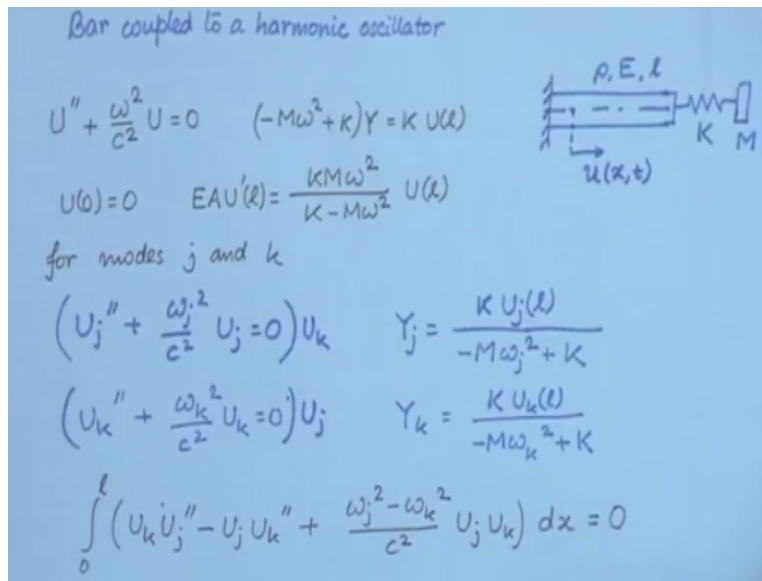 Bar coupled to a harmonic oscillator
ρ, E, l
K M
u(x,t)
U'' + ω²/c² U = 0 (-Mω² + K)Y = K U(l)
U(0) = 0 EAU'(l) = KMω²/(K - Mω²) U(l)
for modes j and k
(U_j'' + ω_j²/c² U_j = 0) U_k Y_j = K U_j(l)/(-Mω_j² + K)
(U_k'' + ω_k²/c² U_k = 0) U_j Y_k = K U_k(l)/(-Mω_k² + K)
∫₀ˡ (U_k U_j'' - U_j U_k'' + (ω_j² - ω_k²)/c² U_j U_k) dx = 0